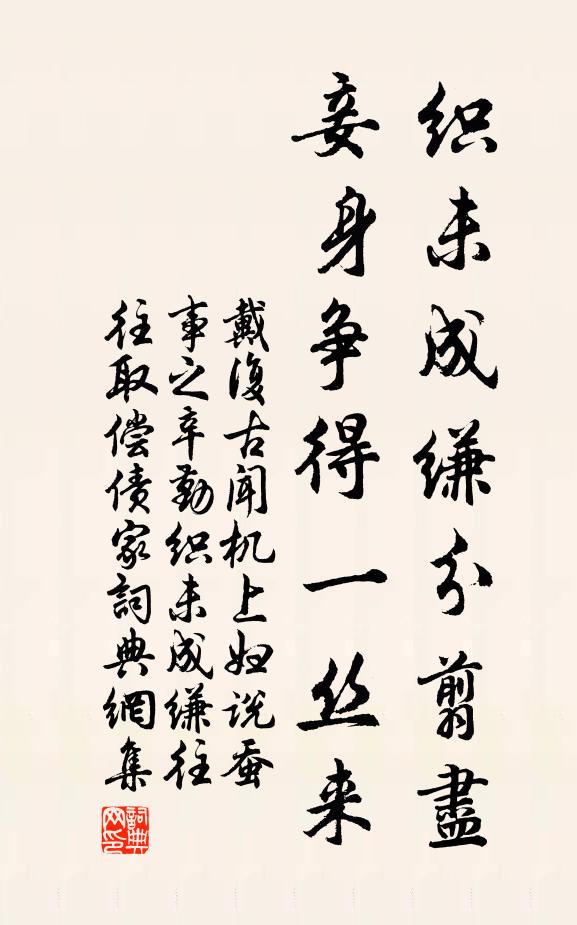 织未成缣分翦盡
妾身争得一丝来
戴復古闻机上妇说蚕
事之辛勤织未成缣往
往取偿债家詞典網集
詞典网印